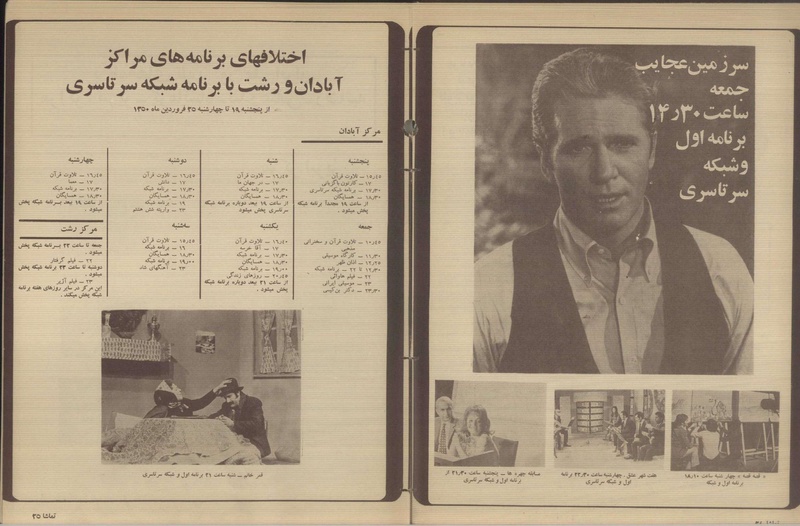 سرزمین عجایب
جمعه
ساعت ۱۴٫۳۰
برنامه اول
و شبکه
سرتاسری
« قصه قصه » چهارشنبه ساعت ۱۸٫۱۰
برنامه اول و شبکه
هفت شهر عشق ـ چهارشنبه ساعت ۲۲٫۳۰ برنامه
اول و شبکه سرتاسری
مسابقه چهره ها ـ پنجشنبه ساعت ۲۱٫۳۰ از
برنامه اول و شبکه سرتاسری
اختلافهای برنامه های مراکز
آبادان و رشت با برنامه شبکه سرتاسری
از پنجشنبه ۱۹ تا چهارشنبه ۲۵ فروردین ماه ۱۳۵۰
مرکز آبادان
پنجشنبه
۱۵٫۴۵ ـ تلاوت قرآن
۱۷ ـ کارتون باگزبانی
۱۷٫۳۰ ـ برنامه شبکه سرتاسری
۱۸٫۳۰ ـ همسایگان
از ساعت ۱۹ مجدداً برنامه شبکه
پخش میشود .
جمعه
۱۰٫۴۵ ـ تلاوت قرآن و سخنرانی
مذهبی
۱۱٫۳۰ ـ کارگاه موسیقی
۱۲٫۲۵ ـ اذان ظهر
۱۲٫۳۰ تا ۲۲ ـ برنامه شبکه
۲۲ ـ فیلم هاوائی
۲۳ ـ موسیقی ایرانی
۲۳٫۳۰ ـ دکتر بن کیسی
شنبه
۱۶٫۴۵ ـ تلاوت قرآن
۱۷ ـ در جهان ما
۱۷٫۳۰ ـ برنامه شبکه
۱۸٫۳۰ ـ همسایگان
از ساعت ۱۹ بعد، دوباره برنامه شبکه
سرتاسری پخش میشود .
یکشنبه
۱۶٫۴۰ ـ تلاوت قرآن
۱۷ ـ آقا خرسه
۱۷٫۳۰ ـ برنامه شبکه
۱۸٫۳۰ ـ همسایگان
۱۹٫۰۰ ـ برنامه شبکه
۲۰٫۴۵ ـ روزهای زندگی
از ساعت ۲۱ بعد دوباره برنامه شبکه
پخش میشود .
دوشنبه
۱۶٫۴۵ ـ تلاوت قرآن
۱۷ ـ دانش
۱۷٫۳۰ ـ برنامه شبکه
۱۸٫۳۰ ـ همسایگان
۱۹ ـ برنامه شبکه
۲۳ ـ واریته شش هشتم
سه‌شنبه
۱۵٫۴۵ ـ تلاوت قرآن
۱۶ ـ برنامه شبکه
۱۸٫۳۰ ـ همسایگان
۱۹٫۰۰ ـ برنامه شبکه
۲۳ ـ آهنگهای شاد
چهارشنبه
۱۶٫۴۵ ـ تلاوت قرآن
۱۷ ـ معما
۱۷٫۳۰ ـ برنامه شبکه
۱۸٫۳۰ ـ همسایگان
از ساعت ۱۹ بعد برنامه شبکه پخش
میشود .
مرکز رشت
جمعه تا ساعت ۲۲ برنامه شبکه پخش
میشود .
۲۲ ـ فیلم گرفتار
دوشنبه تا ساعت ۲۳ برنامه شبکه پخش
میشود .
۲۳ ـ فیلم آژیر
این مرکز در سایر روزهای هفته برنامه
شبکه پخش میکند .
قمر خانم ـ شنبه ساعت ۲۱ برنامه اول و شبکه سرتاسری
تماشا ۳۵